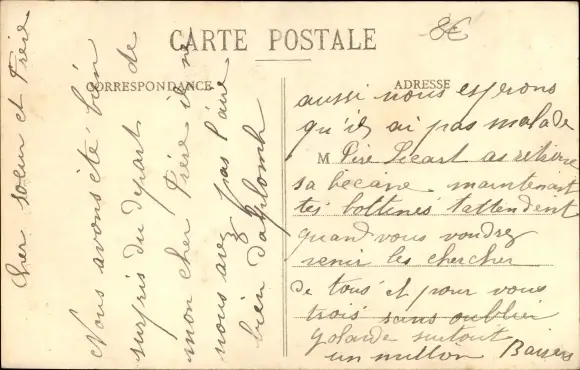 8€
CARTE POSTALE
CORRESPONDANCE
ADRESSE
Cher soeur et Frère
Nous avons été bien
surpris du depart de
mon cher Frère il ne
nous avez pas l'aire
bien d'aplomb
aussi nous esperons
qu'il ai pas malade
M Père Picart as retrouve
sa becane maintenant
tes bottines t'attendent
quand vous voudrez
venir les chercher
de tous et pour vous
trois sans oublier
Yolande surtout
un million Baisers